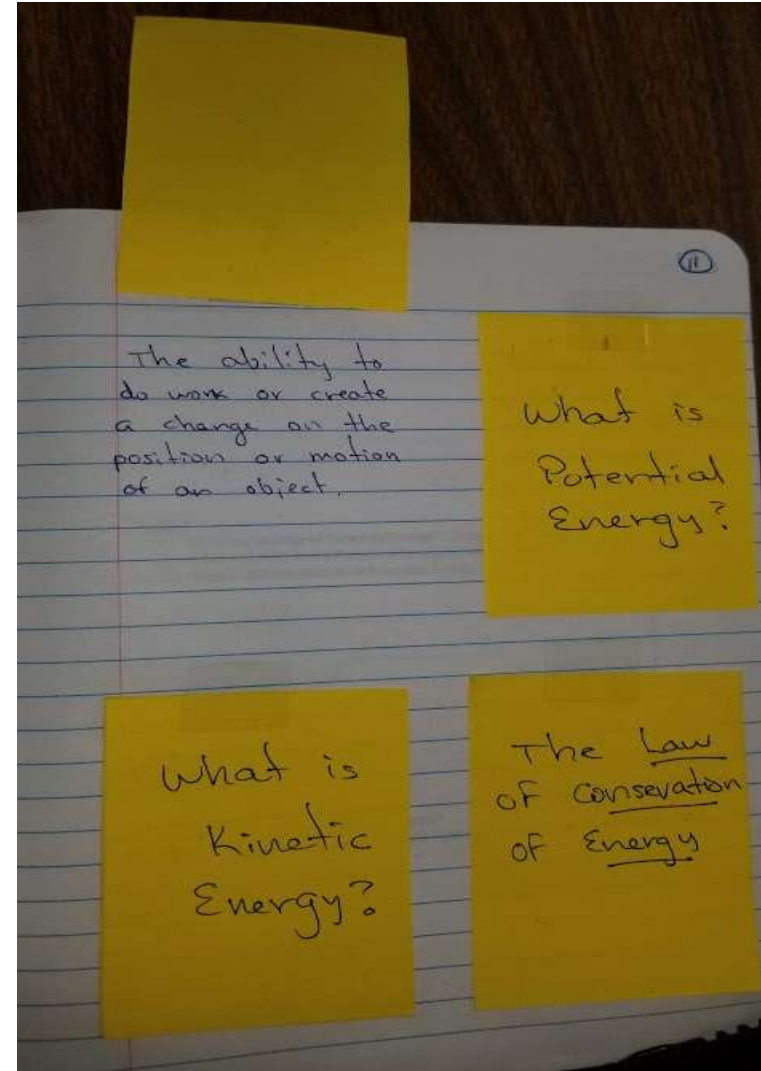 11
The ability to
do work or create
a change on the
position or motion
of an object.
What is
Potential
Energy?
What is
Kinetic
Energy?
The Law
of Consevation
of Energy